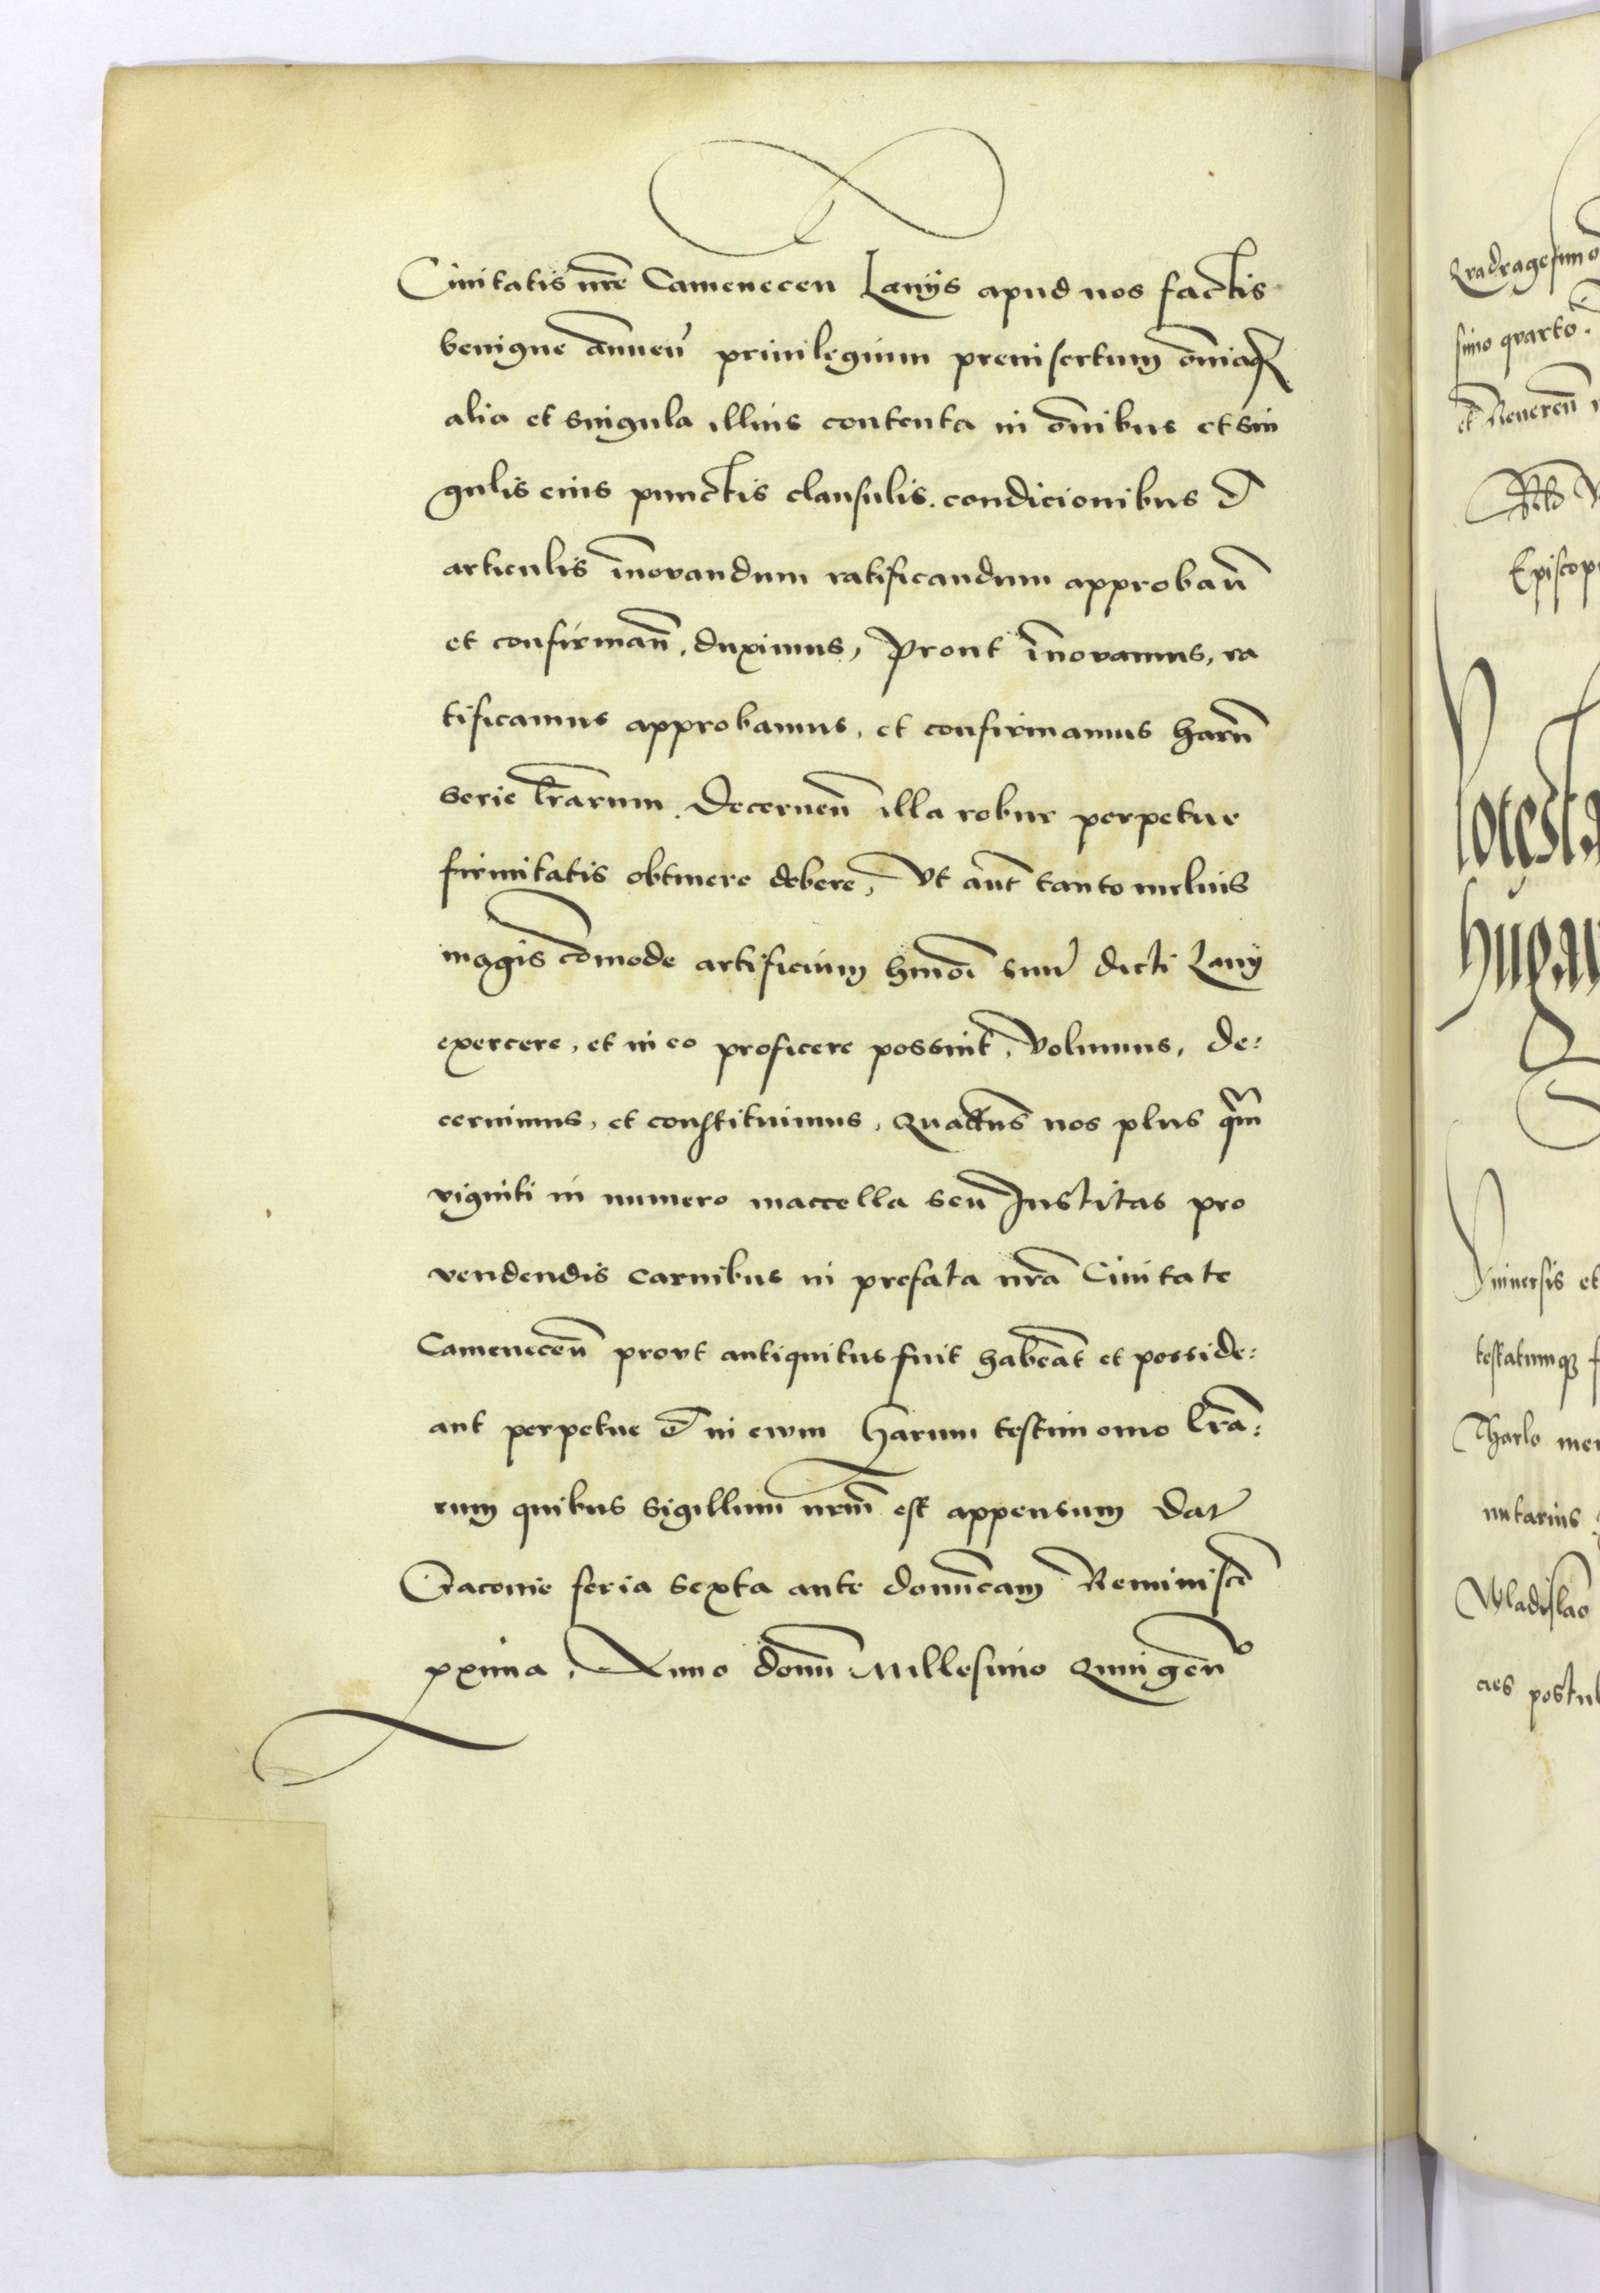 Ciuitatis nr̃e Camenecen̄ Lanijs apud nos factis
benigne annuen̄ priuilegium preinsertum om̄iaq̃
alia et singula illius contenta in om̄ibus et sin
gulis eius punctis clausulis. condicionibus et
articulis in̄ouandum ratificandum approban̄
et confirman̄, duximus, Prout in̄ouamus, ra
tificamus approbamus, et confirmamus harn̄
serie lr̃arum. Decernen̄ illa robur perpetue
firmitatis obtinere debere, Vt aut̄ tanto melius
magis com̄ode artificium hm̄oi suum dicti Lanij
exercere, et in eo proficere possint, Volumus, de:
cernimus, et constituimus, Quaten̄us nos plus qm̃
viginti in numero maccella seu Institas pro
vendendis carnibus in prefata nr̃a Ciuitate
Camenecen̄ prout antiquitus fuit habean̄t et posside:
ant perpetue et in ewm Harum testimonio lr̃a:
rum quibus Sigillum nr̃m est appensum Dat̃
Cracouie feria sexta ante domin̄cam Reminiscē
pxima, Anno domī Millesimo Quingen̄º
Qvadragesimo
simo qvarto.
et Reueren̄
Episcop
Potesta
Hugar
Vniuersis et
testatumq3 f
Tharlo
nutarius
Wladislao
cies postul